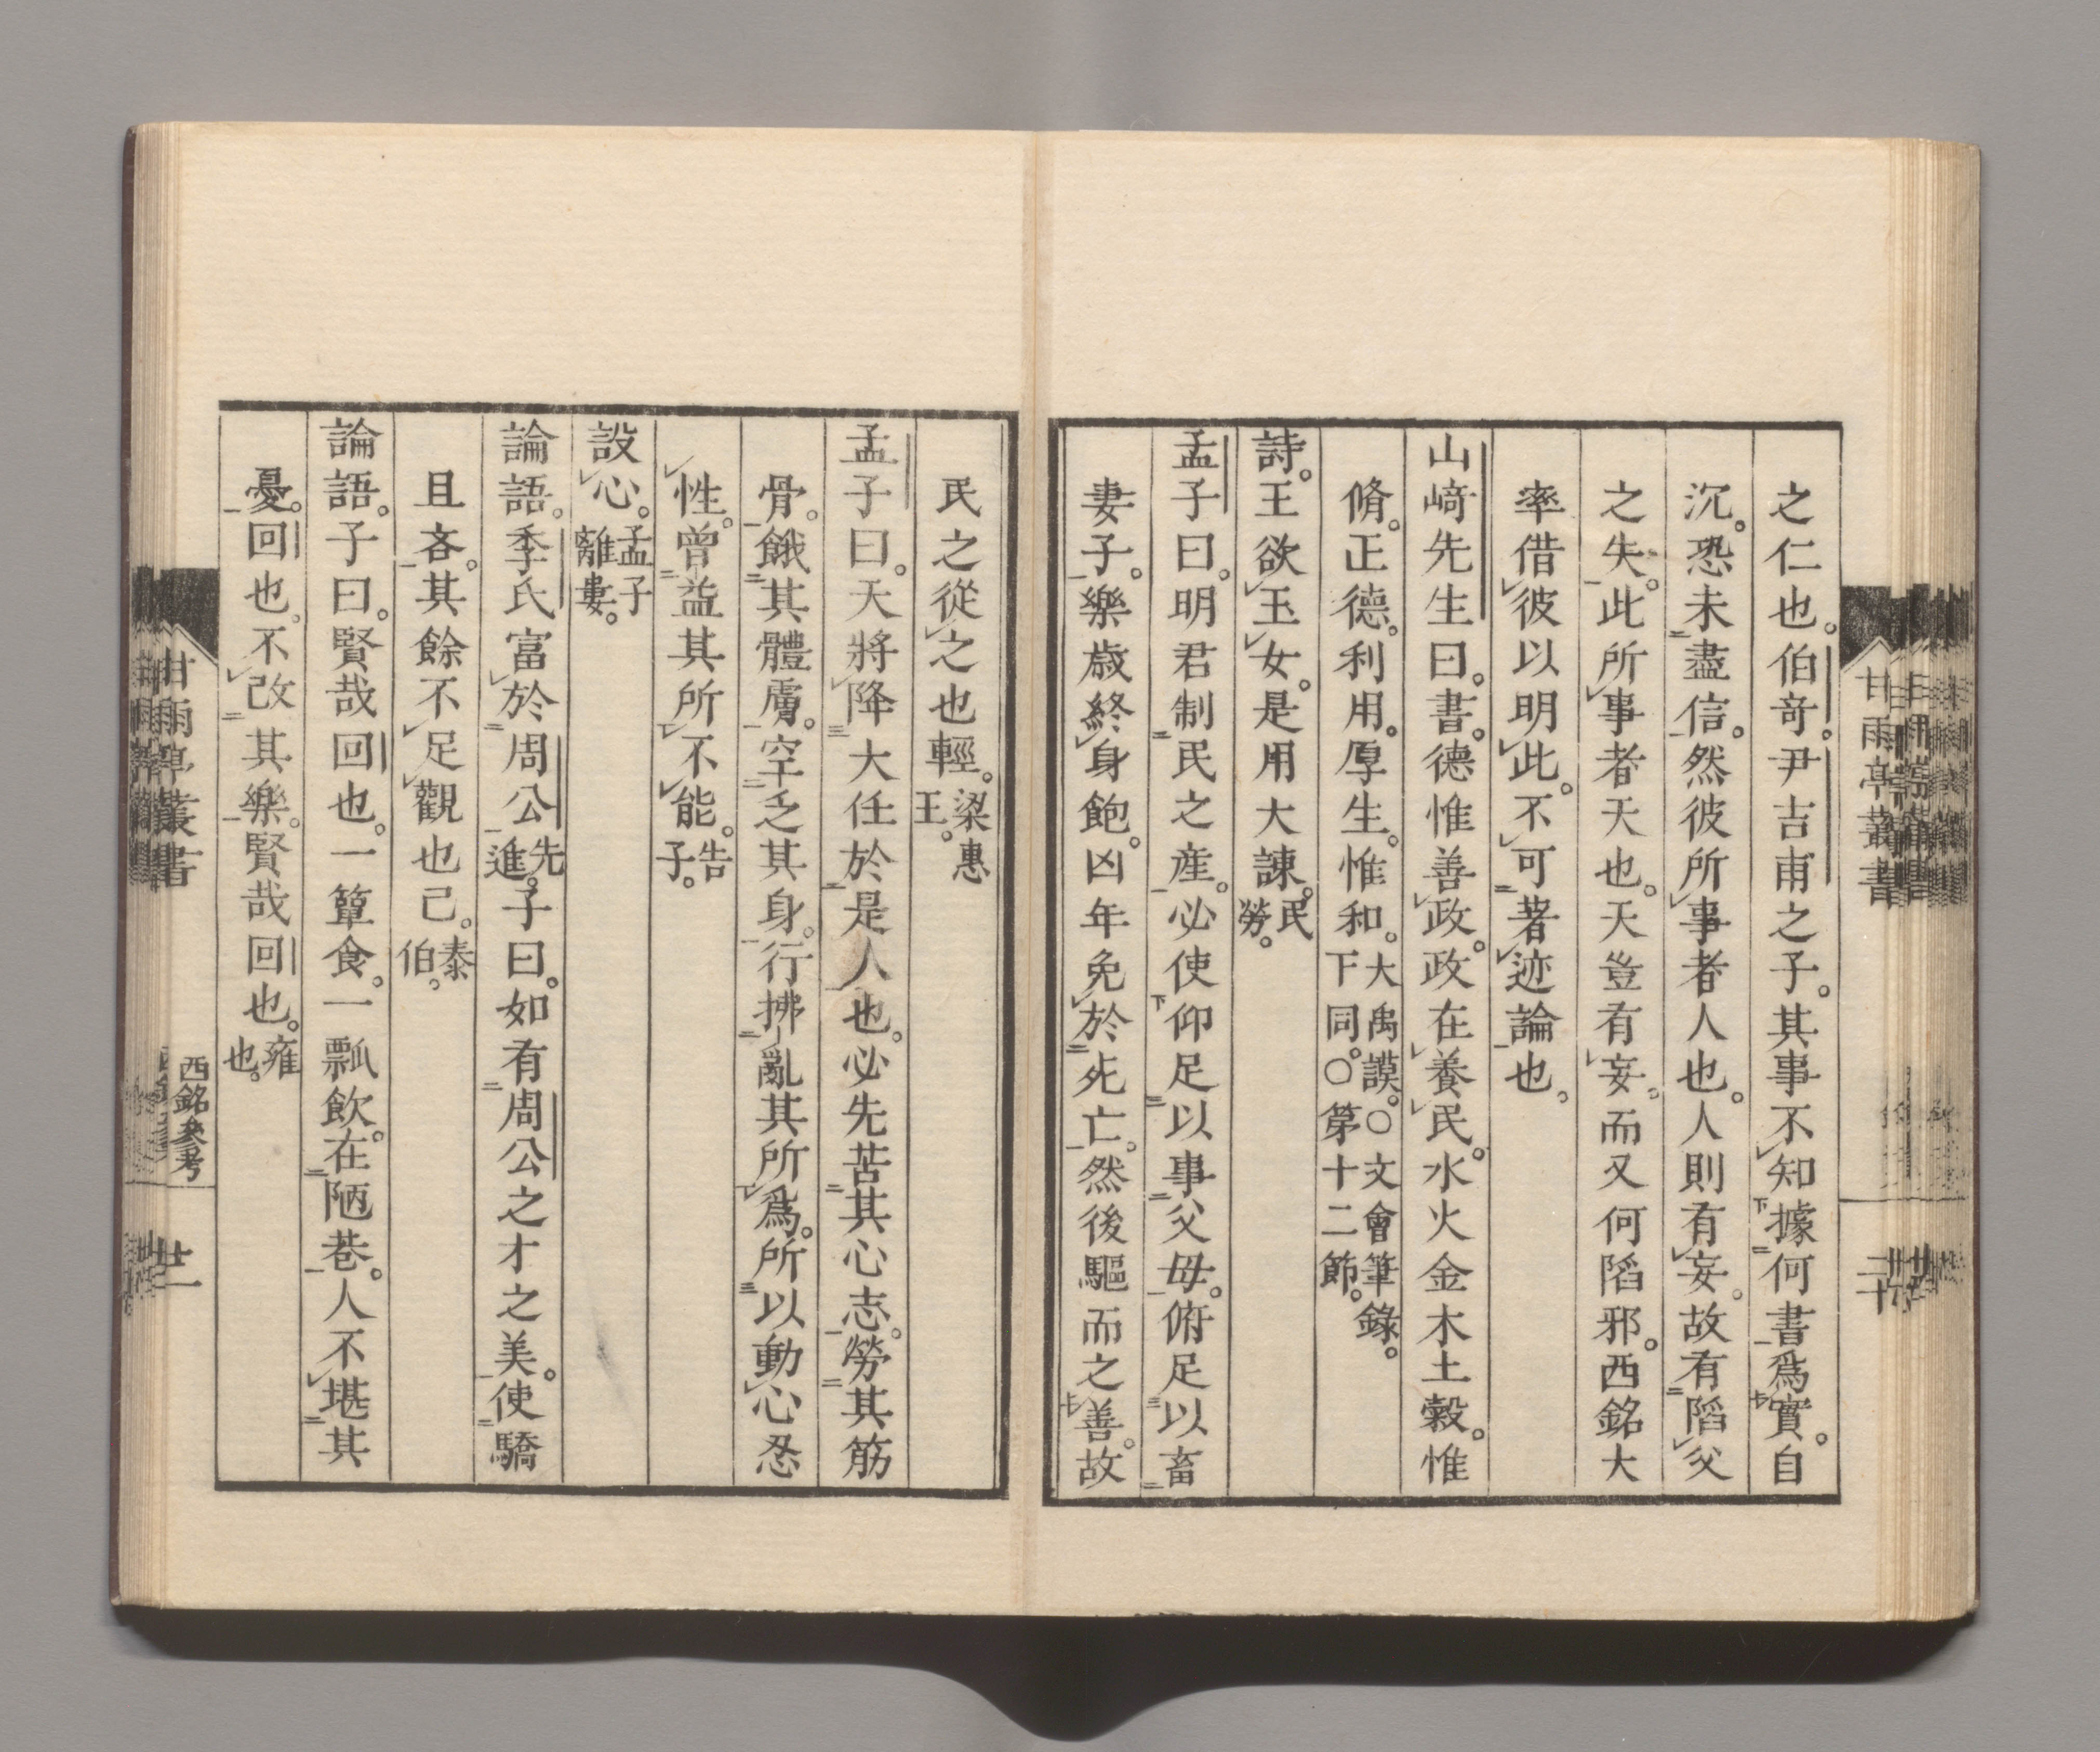 之仁也。伯奇。尹吉甫之子。其事不知據何書爲實。自
沉。恐未盡信。然彼所事者人也。人則有妄。故有陷父
之失。此所事者天也。天豈有妄。而又何陷邪。西銘大
率借彼以明此。不可著迹論也。
山﨑先生曰。書。德惟善政。政在養民。水火金木土穀。惟
脩。正德。利用。厚生。惟和。大禹謨。○文會筆錄。下同。○第十二節。
詩。王欲玉女。是用大諫。民勞。
孟子曰。明君制民之産。必使仰足以事父母。俯足以畜
妻子。樂歲終身飽。凶年免於死亡。然後驅而之善。故
民之從之也輕。梁惠王。
孟子曰。天將降大任於是人也。必先苦其心志。勞其筋
骨。餓其體膚。空乏其身。行拂亂其所爲。所以動心忍
性。曾益其所不能。告子。
設心。孟子離婁。
論語。季氏富於周公。先進。子曰。如有周公之才之美。使驕
且吝。其餘不足觀也已。泰伯。
論語。子曰。賢哉回也。一簞食。一瓢飲。在陋巷。人不堪其
憂。回也。不改其樂。賢哉回也。雍也。
甘雨亭叢書
二十
甘雨亭叢書
西銘參考
廿一